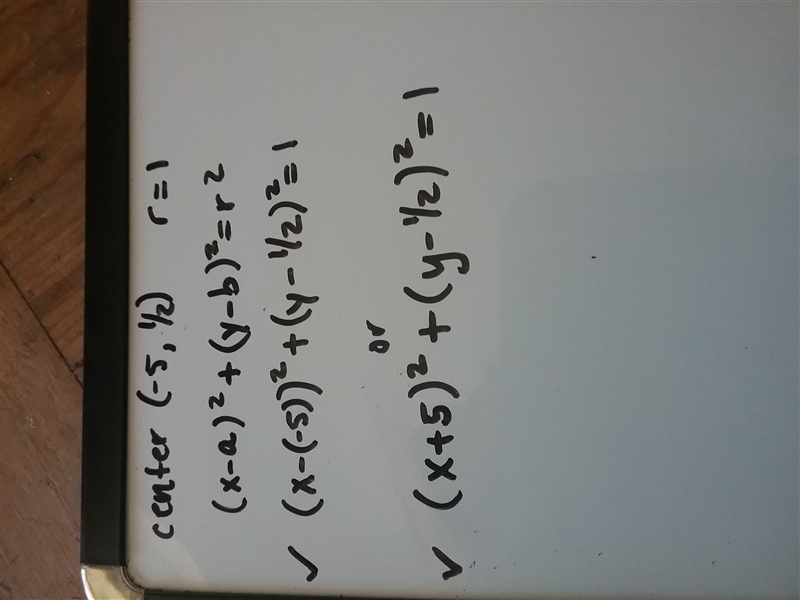 center (-5, 1/2) r=1
(x-a)²+(y-b)²=r²
✓ (x-(-5))²+(y-1/2)²=1
or
✓ (x+5)²+(y-1/2)²=1